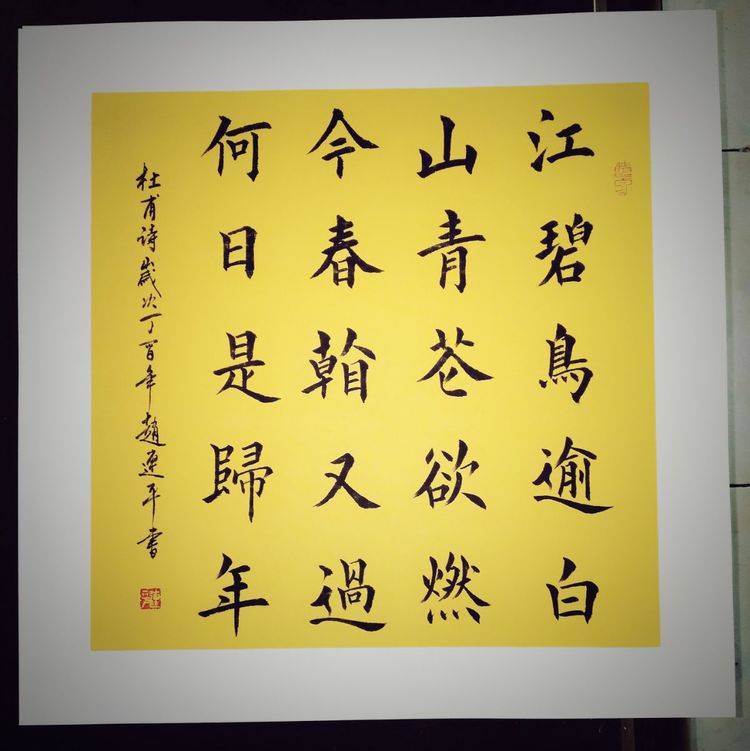 江碧鳥逾白
山青花欲燃
今春看又過
何日是歸年
杜甫詩歲次丁酉年趙連平書